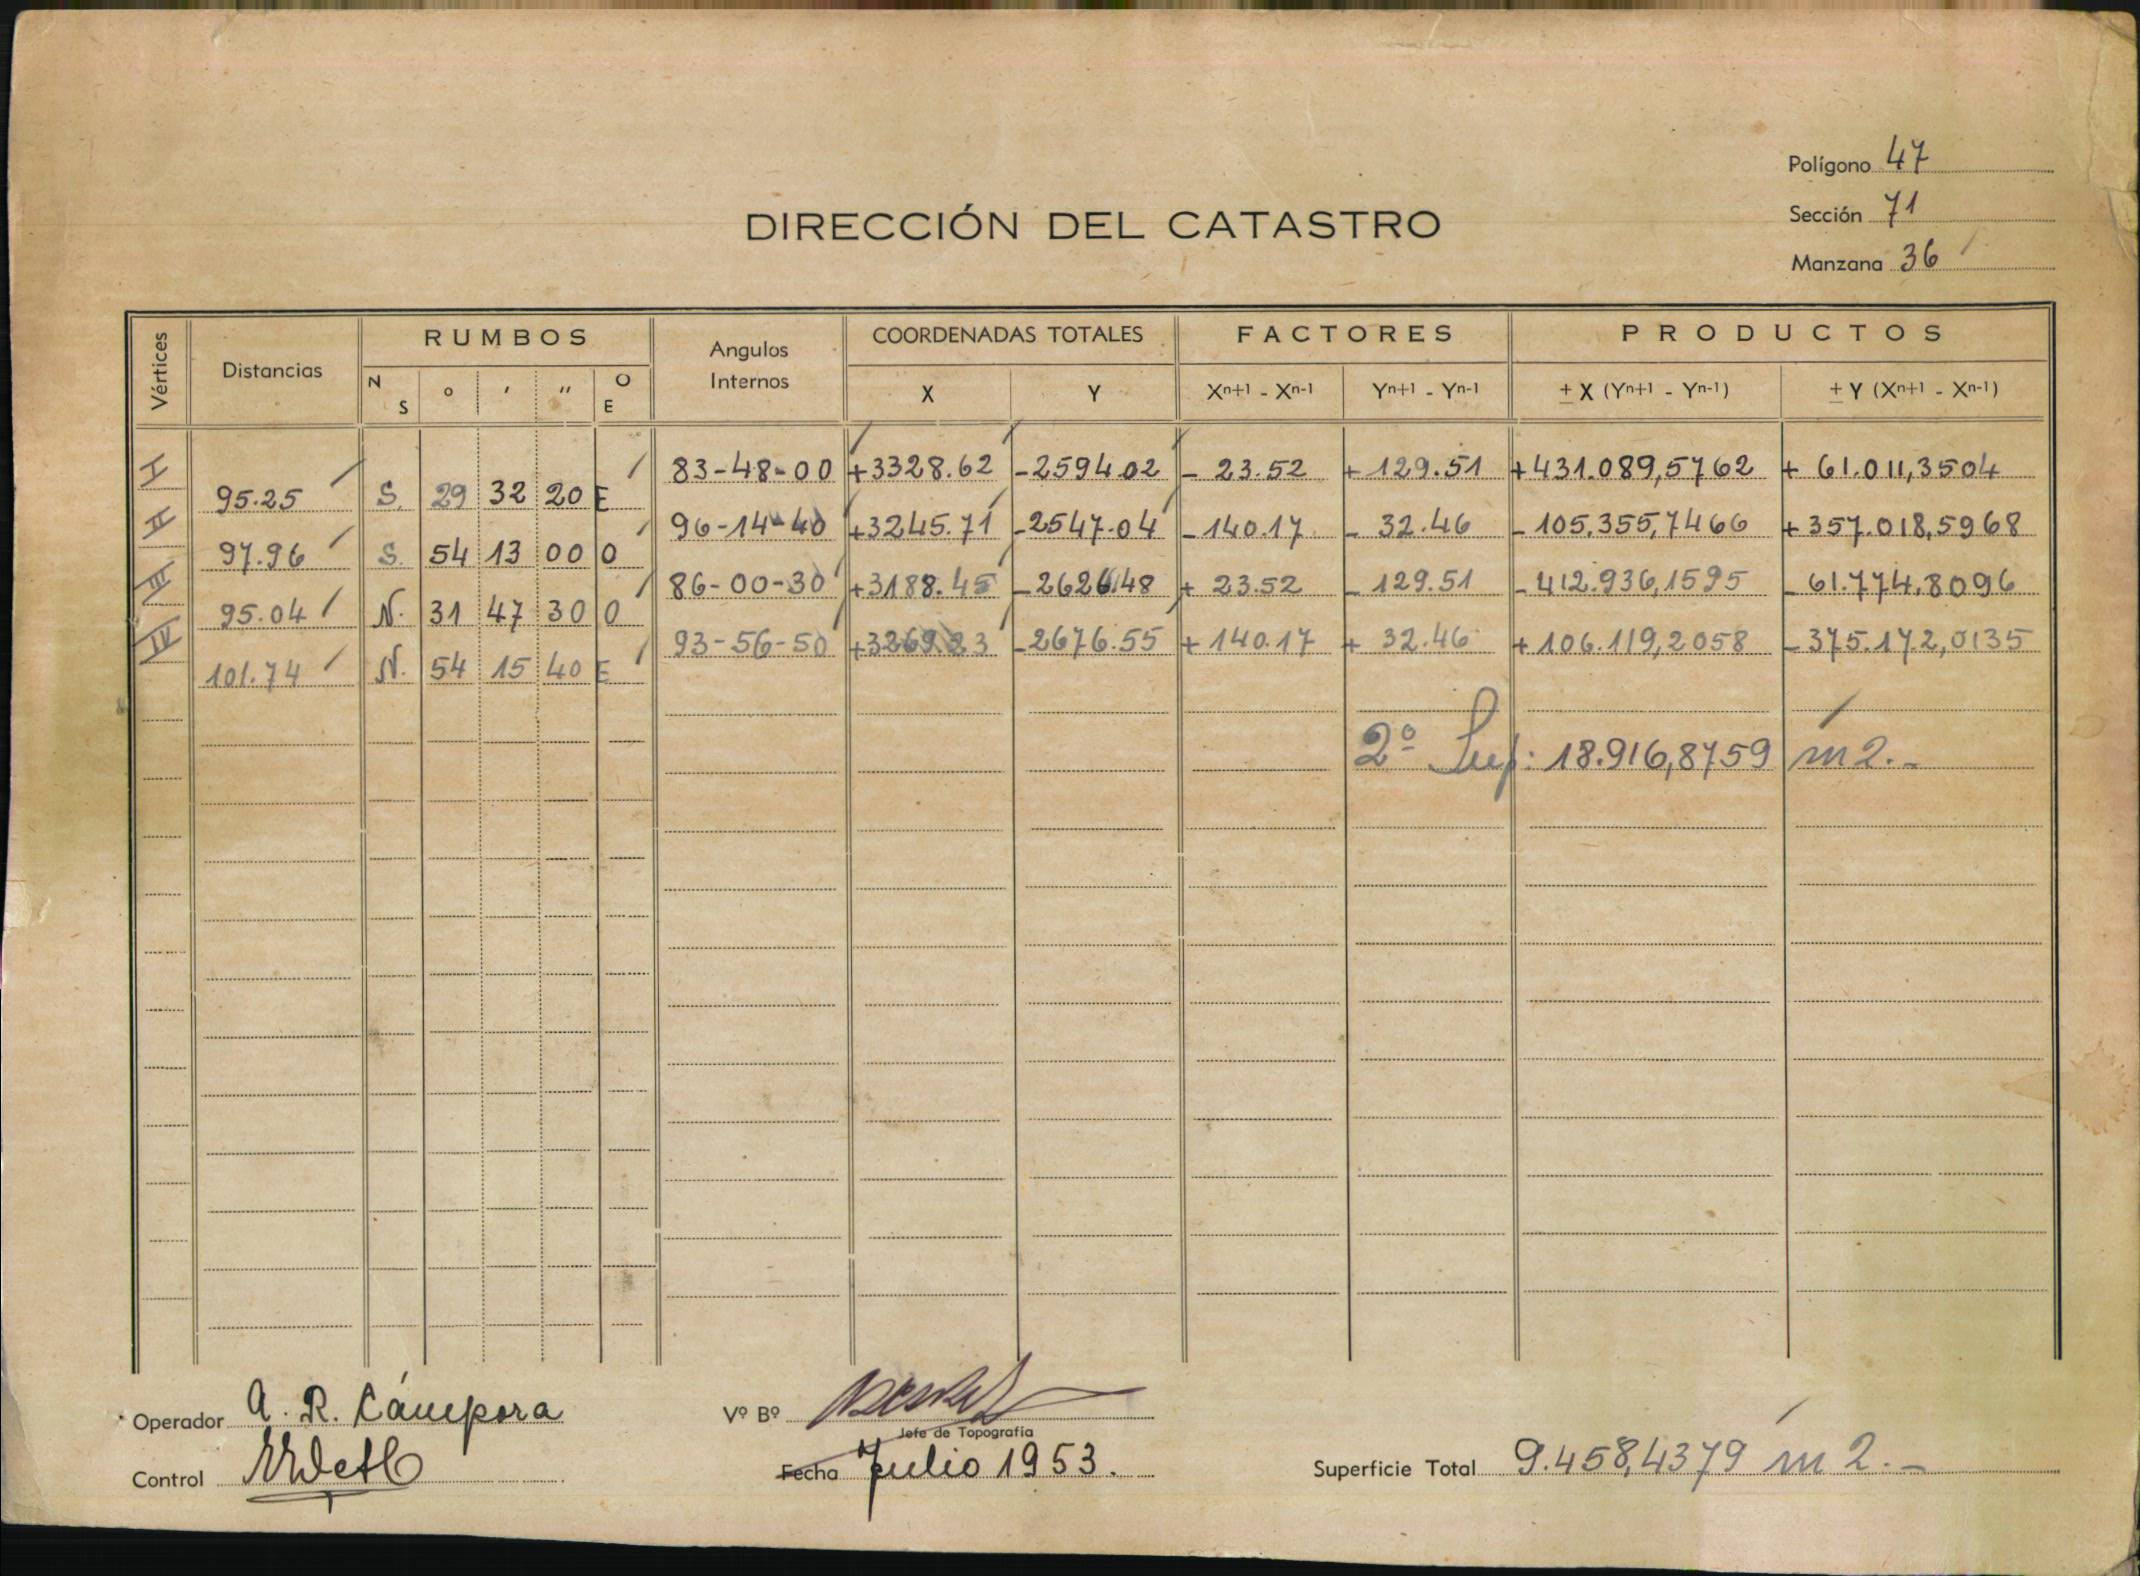 Polígono 47
Sección 71
DIRECCIÓN DEL CATASTRO
Manzana 36
Vértices Distancias RUMBOS Angulos Internos COORDENADAS TOTALES FACTORES PRODUCTOS
N S ° ' '' O E X Y Xⁿ⁺¹ - Xⁿ⁻¹ Yⁿ⁺¹ - Yⁿ⁻¹ ± X (Yⁿ⁺¹ - Yⁿ⁻¹) ± Y (Xⁿ⁺¹ - Xⁿ⁻¹)
I 83-48-00 +3328.62 -2594.02 - 23.52 + 129.51 +431.089,5762 + 61.011,3504
95.25 S. 29 32 20 E
II 96-14-40 +3245.71 -2547.04 -140.17 - 32.46 - 105.355,7466 +357.018,5968
97.96 S. 54 13 00 O
III 86-00-30 +3188.45 -2626.48 + 23.52 - 129.51 -412.936,1595 -61.774,8096
95.04 N. 31 47 30 O
IV 93-56-50 +3269.23 -2676.55 + 140.17 + 32.46 +106.119,2058 -375.172,0135
101.74 N. 54 15 40 E
2º Sup: 18.916,8759 m2.-
Operador A. R. Cámpora Vº Bº
Jefe de Topografía
Control Fecha Julio 1953. Superficie Total 9.458,4379 m2.-